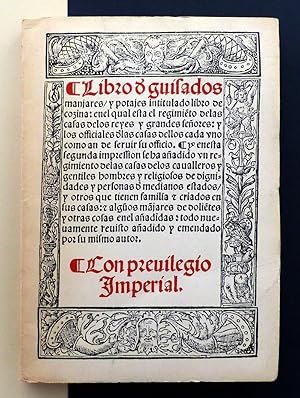 ¶ Libro ꝺ guisados
manjares / y potajes intitulado libro de
cozina: enel qual esta el regimiẽto delas
casas delos reyes y grandes señores: y
los officiales ꝺlas casas dellos cada vno
como an de seruir su officio. ¶ Y enesta
segunda impression se ha añadido vn re-
gimiento delas casas delos caualleros y
gentiles hombres y religiosos de digni-
dades y personas ꝺ medianos estados /
y otros que tienen familia ⁊ criados en
sus casas: ⁊ algũos mãjares de doliẽtes
y otras cosas enel añadidas: todo nue-
uamente reuisto añadido y emendado
por su mismo autor.
¶ Con preuilegio
Imperial.